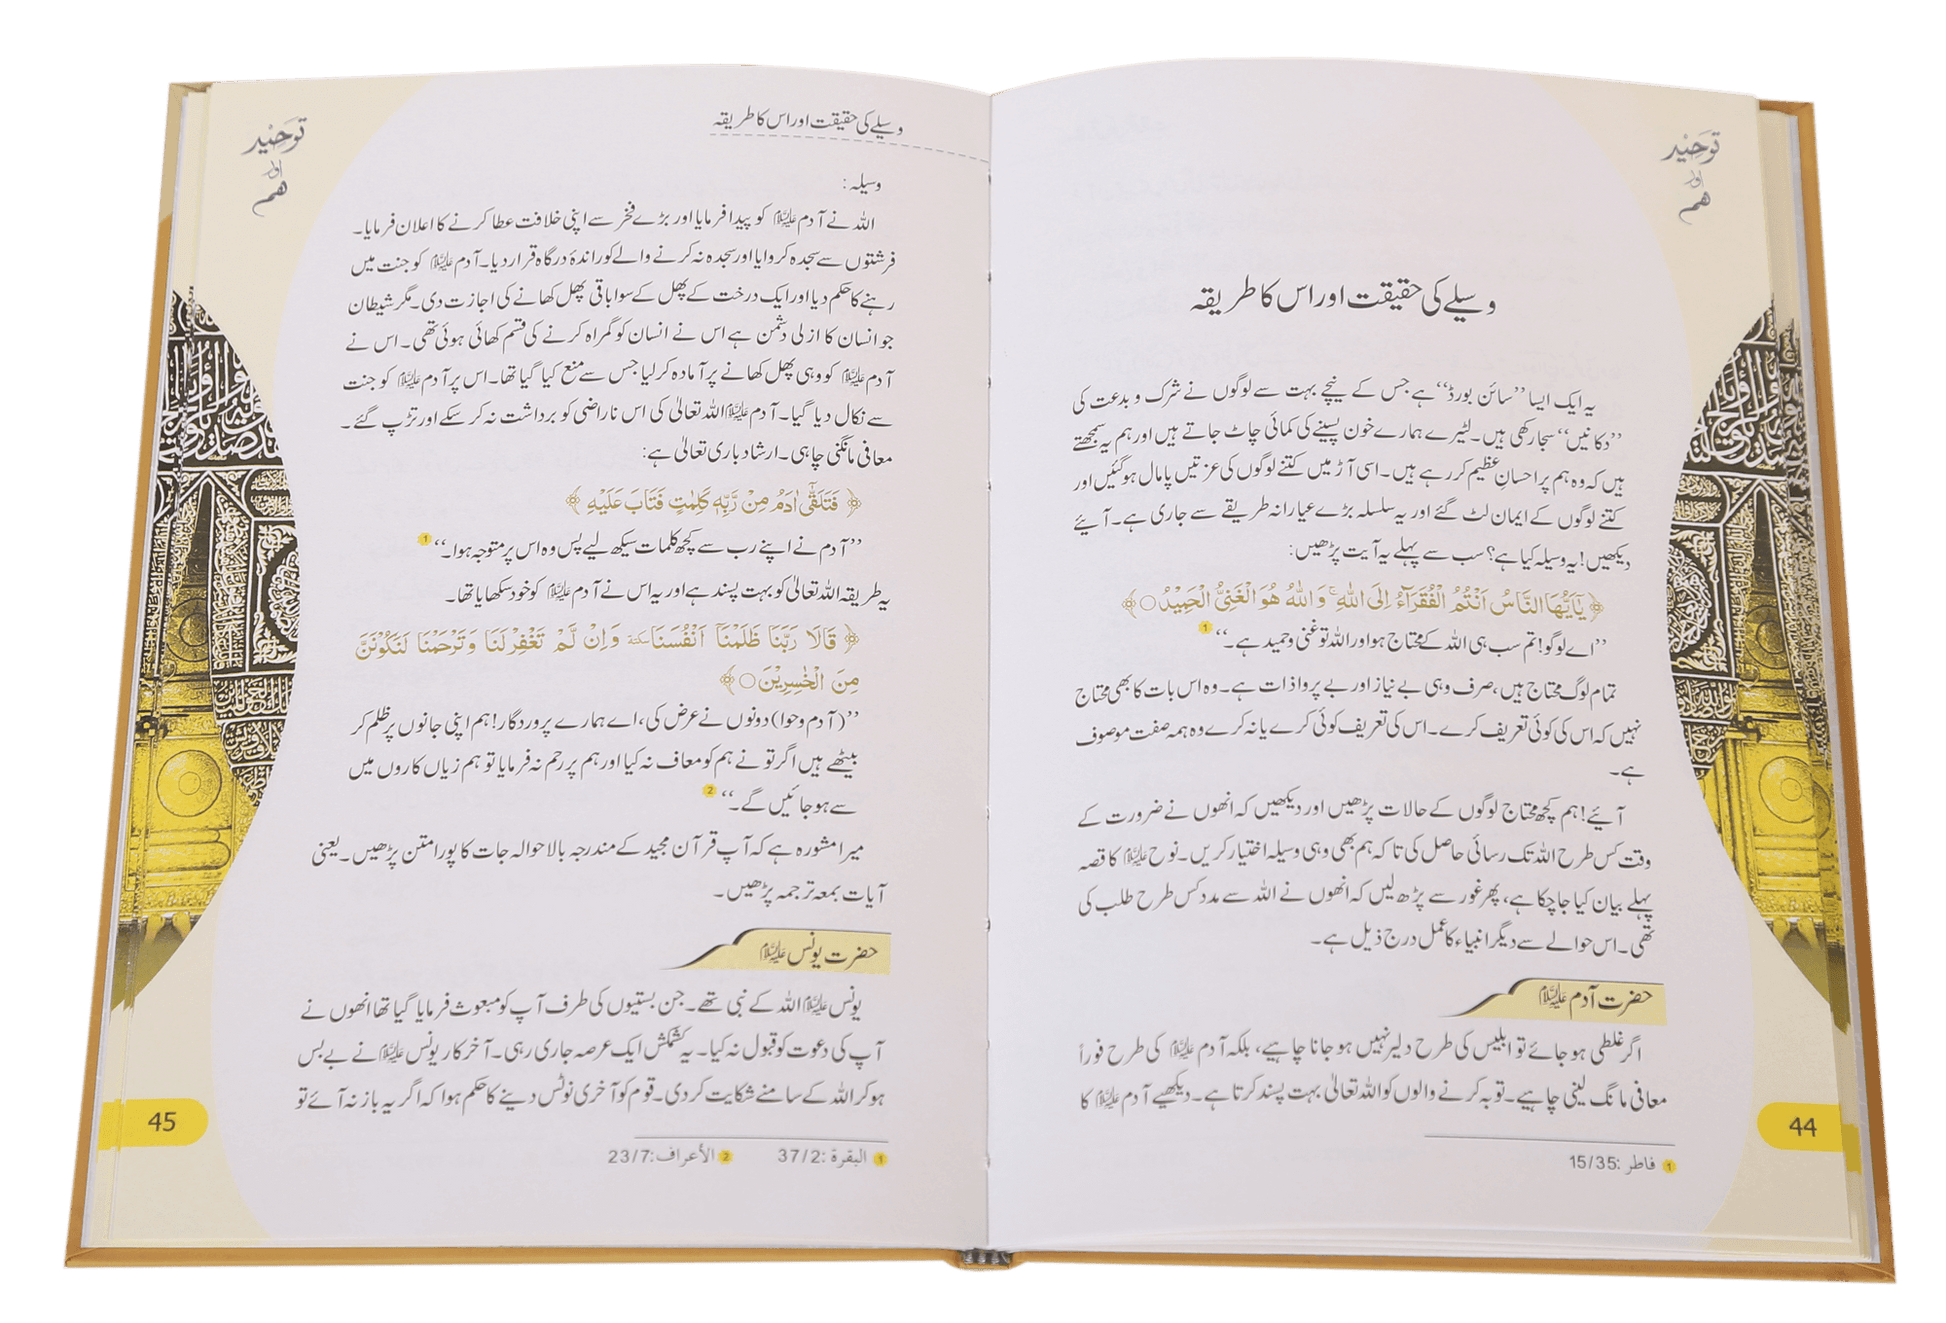 توحید
اور
ھم
وسیلے کی حقیقت اور اس کا طریقہ
یہ ایک ایسا ’’سائن بورڈ‘‘ ہے جس کے نیچے بہت سے لوگوں نے شرک و بدعت کی
’’دکانیں‘‘ سجا رکھی ہیں۔ لٹیرے ہمارے خون پسینے کی کمائی چاٹ جاتے ہیں اور ہم یہ سمجھتے
ہیں کہ وہ ہم پر احسانِ عظیم کر رہے ہیں۔ اسی آڑ میں کتنے لوگوں کی عزتیں پامال ہو گئیں اور
کتنے لوگوں کے ایمان لٹ گئے اور یہ سلسلہ بڑے عیارانہ طریقے سے جاری ہے۔ آئیے
دیکھیں! یہ وسیلہ کیا ہے؟ سب سے پہلے یہ آیت پڑھیں:
﴿ يٰۤاَيُّهَا النَّاسُ اَنْتُمُ الْفُقَرَآءُ اِلَى اللّٰهِ ۚ وَاللّٰهُ هُوَ الْغَنِيُّ الْحَمِيْدُ○ ﴾
’’اے لوگو! تم سب ہی اللہ کے محتاج ہو اور اللہ تو غنی وحمید ہے۔‘‘ 1
تمام لوگ محتاج ہیں، صرف وہی بے نیاز اور بے پروا ذات ہے۔ وہ اس بات کا بھی محتاج
نہیں کہ اس کی کوئی تعریف کرے۔ اس کی تعریف کوئی کرے یا نہ کرے وہ ہمہ صفت موصوف
ہے۔
آئیے! ہم کچھ محتاج لوگوں کے حالات پڑھیں اور دیکھیں کہ انھوں نے ضرورت کے
وقت کس طرح اللہ تک رسائی حاصل کی تاکہ ہم بھی وہی وسیلہ اختیار کریں۔ نوح علیہ السلام کا قصہ
پہلے بیان کیا جاچکا ہے، پھر غور سے پڑھ لیں کہ انھوں نے اللہ سے مدد کس طرح طلب کی
تھی۔ اس حوالے سے دیگر انبیاء کا عمل درج ذیل ہے۔
حضرت آدم علیہ السلام
اگر غلطی ہو جائے تو ابلیس کی طرح دلیر نہیں ہو جانا چاہیے، بلکہ آدم علیہ السلام کی طرح فوراً
معافی مانگ لینی چاہیے۔ توبہ کرنے والوں کو اللہ تعالیٰ بہت پسند کرتا ہے۔ دیکھیے آدم علیہ السلام کا
1 فاطر :15/35
44
توحید
اور
ھم
وسیلے کی حقیقت اور اس کا طریقہ
وسیلہ:
اللہ نے آدم علیہ السلام کو پیدا فرمایا اور بڑے فخر سے اپنی خلافت عطا کرنے کا اعلان فرمایا۔
فرشتوں سے سجدہ کروایا اور سجدہ نہ کرنے والے کو راندۂ درگاہ قرار دیا۔ آدم علیہ السلام کو جنت میں
رہنے کا حکم دیا اور ایک درخت کے پھل کے سوا باقی پھل کھانے کی اجازت دی۔ مگر شیطان
جو انسان کا ازلی دشمن ہے اس نے انسان کو گمراہ کرنے کی قسم کھائی ہوئی تھی۔ اس نے
آدم علیہ السلام کو وہی پھل کھانے پر آمادہ کر لیا جس سے منع کیا گیا تھا۔ اس پر آدم علیہ السلام کو جنت
سے نکال دیا گیا۔ آدم علیہ السلام اللہ تعالیٰ کی اس ناراضی کو برداشت نہ کر سکے اور تڑپ گئے۔
معافی مانگنی چاہی۔ ارشاد باری تعالیٰ ہے:
﴿ فَتَلَقّٰۤى اٰدَمُ مِنْ رَّبِّهٖ كَلِمٰتٍ فَتَابَ عَلَيْهِ ﴾
’’آدم نے اپنے رب سے کچھ کلمات سیکھ لیے پس وہ اس پر متوجہ ہوا۔‘‘ 1
یہ طریقہ اللہ تعالیٰ کو بہت پسند ہے اور یہ اس نے آدم علیہ السلام کو خود سکھایا تھا۔
﴿ قَالَا رَبَّنَا ظَلَمْنَاۤ اَنْفُسَنَا سكتة وَاِنْ لَّمْ تَغْفِرْ لَنَا وَتَرْحَمْنَا لَنَكُوْنَنَّ
مِنَ الْخٰسِرِيْنَ○ ﴾
’’(آدم وحوا) دونوں نے عرض کی، اے ہمارے پروردگار! ہم اپنی جانوں پر ظلم کر
بیٹھے ہیں اگر تو نے ہم کو معاف نہ کیا اور ہم پر رحم نہ فرمایا تو ہم زیاں کاروں میں
سے ہو جائیں گے۔‘‘ 2
میرا مشورہ ہے کہ آپ قرآن مجید کے مندرجہ بالا حوالہ جات کا پورا متن پڑھیں۔ یعنی
آیات بمعہ ترجمہ پڑھیں۔
حضرت یونس علیہ السلام
یونس علیہ السلام اللہ کے نبی تھے۔ جن بستیوں کی طرف آپ کو مبعوث فرمایا گیا تھا انھوں نے
آپ کی دعوت کو قبول نہ کیا۔ یہ کشمکش ایک عرصہ جاری رہی۔ آخر کار یونس علیہ السلام نے بے بس
ہو کر اللہ کے سامنے شکایت کر دی۔ قوم کو آخری نوٹس دینے کا حکم ہوا کہ اگر یہ باز نہ آئے تو
1 البقرة :37/2 2 الأعراف:23/7
45